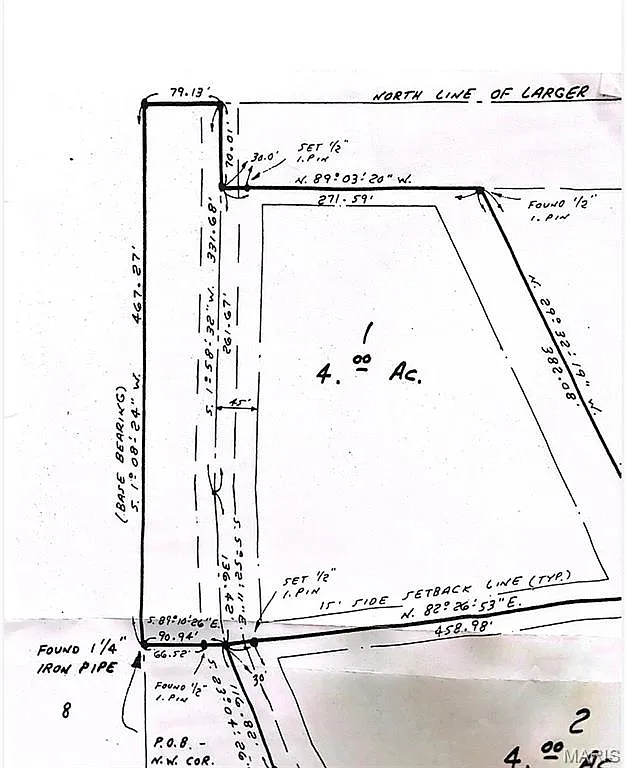 79.13'
NORTH LINE OF LARGER
70.01'
30.0'
SET 1/2"
I. PIN
N. 89° 03' 20" W.
271.59'
FOUND 1/2"
I. PIN
331.68'
S. 1° 58' 32" W.
261.67'
467.27'
S. 1° 08' 24" W.
(BASE BEARING)
N. 29° 32' 19" W.
382.08'
1
4.00 Ac.
45'
S. 5° 52' 11" E.
136.42
SET 1/2"
I. PIN
15' SIDE SETBACK LINE (TYP.)
N. 82° 26' 53" E.
458.98'
S. 89° 10' 26" E.
90.94'
66.52'
FOUND 1 1/4"
IRON PIPE
FOUND 1/2"
I. PIN
30'
116.82'
S. 23° 04' 26"
8
P.O.B. -
N.W. COR.
2
4.00 Ac
MARIS